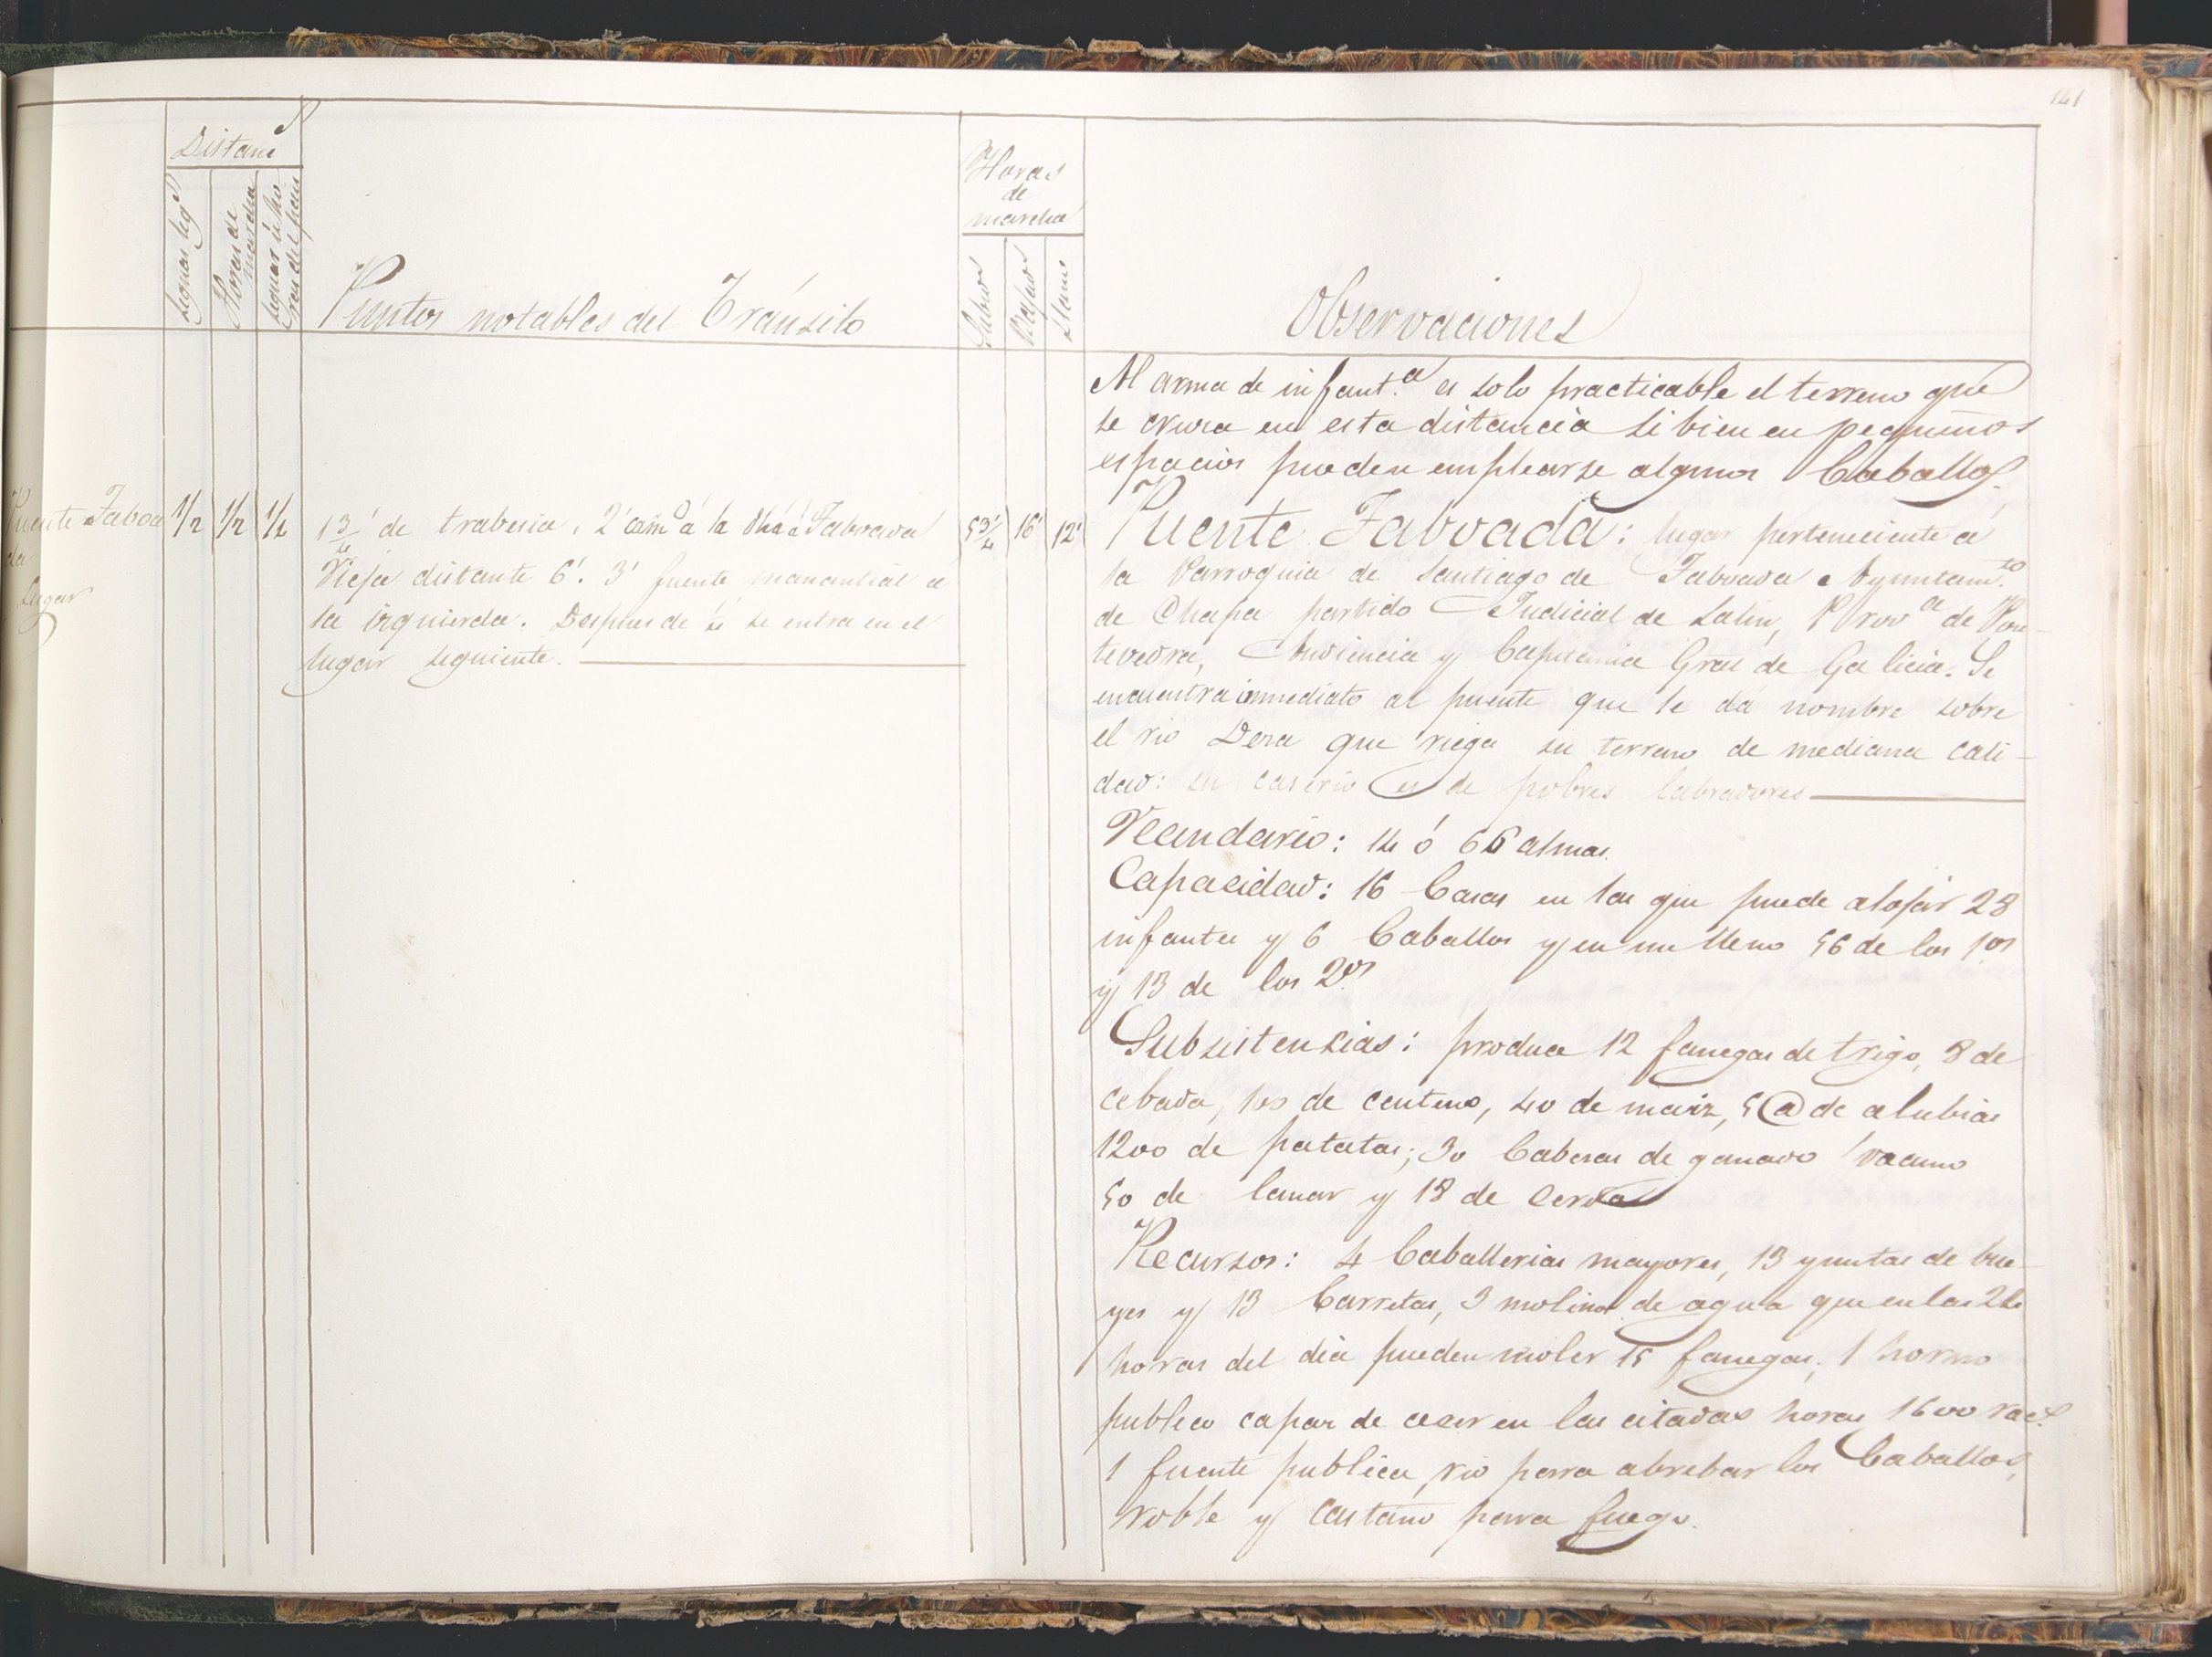 141
Distanc.s
Leguas leg.s
Horas de marcha
Leguas ú ho
ras del pais
Puntos notables del Tránsito
Horas
de
marcha
Subid.s
Bajad.s
Llano
Observaciones
Al arma de infant.a es solo practicable el terreno que
se cruza en esta distancia si bien en pequeños
espacios pueden emplearse algunos Caballos.
Puente Taboa
da
Lugar
1/2 1/2 1/2
1 3/4' de trabesia. 2' cam.o á la dha á Taboada
Vieja distante 6'. 3' fuente manantial á
la izquierda. Despues de 4' se entra en el
lugar siguiente.
5 3/4' 16' 12'
Puente Taboada: lugar perteneciente á
la Parroquia de Santiago de Taboada Ayuntam.to
de Chapa partido Judicial de Lalin, Prov.a de Pon-
tevedra, Audiencia y Capitania Gral de Galicia. Se
encuentra inmediato al puente que le dá nombre sobre
el rio Deza que riega su terreno de mediana cali-
dad: su caserio es de pobres labradores
Vecindario: 14 ó 66 almas.
Capacidad: 16 Casas en las que puede alojar 28
infantes y 6 Caballos y en un lleno 56 de los 1.os
y 13 de los 2.os
Subsistencias: produce 12 fanegas de trigo, 8 de
cebada, 100 de centeno, 40 de maiz, 5 @ de alubias
1200 de patatas; 30 Cabezas de ganado vacuno
50 de lanar y 18 de cerda
Recursos: 4 Caballerias mayores, 13 yuntas de bue-
yes y 13 Carretas, 3 molinos de agua que en las 24
horas del dia pueden moler 15 fanegas, 1 horno
publico capaz de cocer en las citadas horas 1600 rac.s
1 fuente publica, rio para abrebar los Caballos,
roble y castaño para fuego.